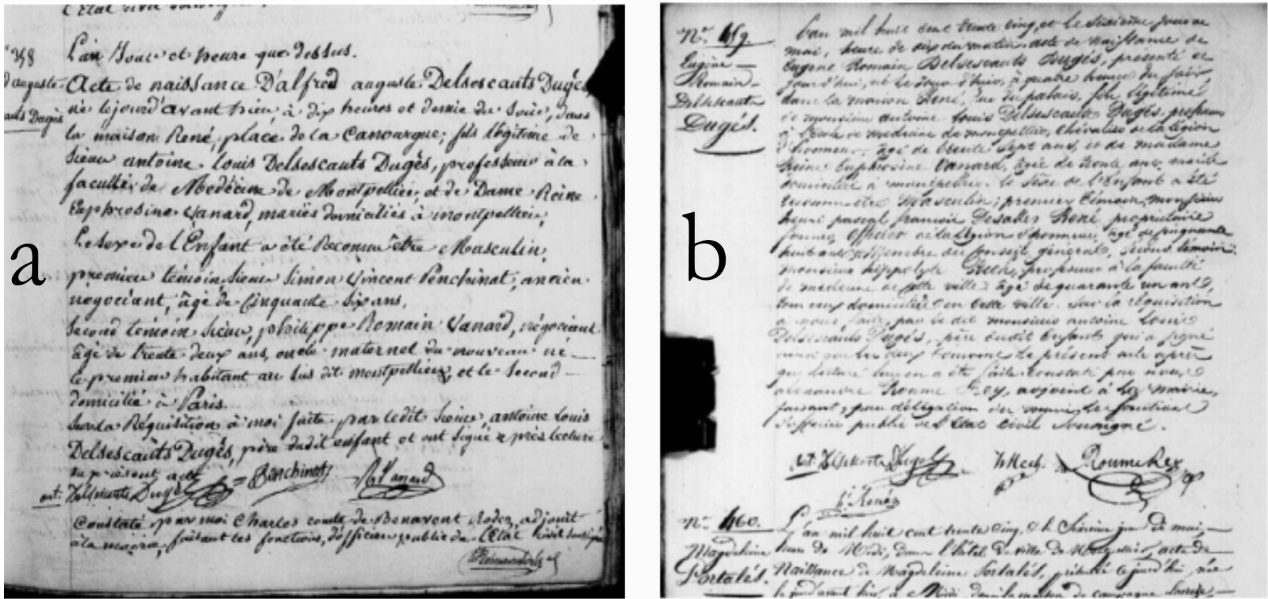 a
L'an Jour et heure que dessus.
Acte de naissance D'alfred auguste Delsescauts Dugès,
né lejourd'avant hier, à dix heures et demie du Soir, dans
la maison René, place de la Canourgue; fils légitime de
Sieur antoine Louis Delsescauts Dugès, professeur à la
faculté de Médécine de Montpellier, et de Dame Reine
Euphrosine Vanard, mariés domiciliés à montpellier,
Le Sexe de l'Enfant a été Reconnu être Masculin,
premier témoin Sieur Simon Vincent Penchinat, ancien
negociant, âgé de Cinquante Six ans,
Second temoin Sieur, philippe Romain Vanard, négociant
âgé de trente deux ans, oncle maternel du nouveau né
le premier habitant au dit montpellier, et le Second
domicilié à Paris.
Sur la Réquisition à moi faite par ledit Sieur, antoine Louis
Delsescauts Dugès, père dudit enfant et ont Signé après lecture
du présent acte
ant: Delsescauts Dugès Penchinat R. Vanard
Constaté par moi Charles comte de Benavent Rodez, adjoint
à la mairie, faisant les fonctions, d'officier public de l'Etat Civil
b
N.º 459.
Eugène
Romain
Delsescauts
Dugès.
L'an mil huit cent trente cinq, et le Seizième jour de
mai, heure de dix du matin, acte de naissance de
Eugène Romain Delsescauts Dugès, présenté ce
jourd'hui, né le jour d'hier, à quatre heures du soir
dans la maison René, rue du palais, fils légitime
de monsieur antoine Louis Delsescauts Dugès, professeur
à l'école de médecine de montpellier, chevalier de la légion
d'honneur, âgé de trente Sept ans, et de madame
Reine Euphrosine Vanard, âgée de trente ans, mariés
domiciliés à montpellier. le Sexe de l'Enfant a été
reconnu être Masculin; premier témoin, monsieur
henri pascal francois René propriétaire
officier de la légion d'honneur, âgé de cinquante
huit ans, membre du Conseil général, Second témoin
monsieur hippolyte Rech, professeur à la faculté
de médecine de cette ville âgé de quarante un ans,
tous deux domiciliés en cette ville. Sur la réquisition
à nous faite par le dit monsieur antoine Louis
Delsescauts Dugès, père dudit Enfant qui a signé
avec les deux témoins le présent acte après
que lecture leur en a été faite Constaté par nous,
alexandre Roume Rey, adjoint à la mairie,
faisant, par délégation du maire, les fonctions
d'officier public de l'Etat civil Soussigné.
ant. Delsescauts Dugès H. Rech RoumeRey
René
N.º 460.
Magdeleine
Portalès.
L'an mil huit cent trente cinq, & le Seizième jour de mai,
heure de Midi, dans l'hôtel de ville de Montpellier, acte de
Naissance de Magdeleine Portalès, présentée cejourd'hui, née
le jour d'avant hier, à Midi dans la maison de campagne